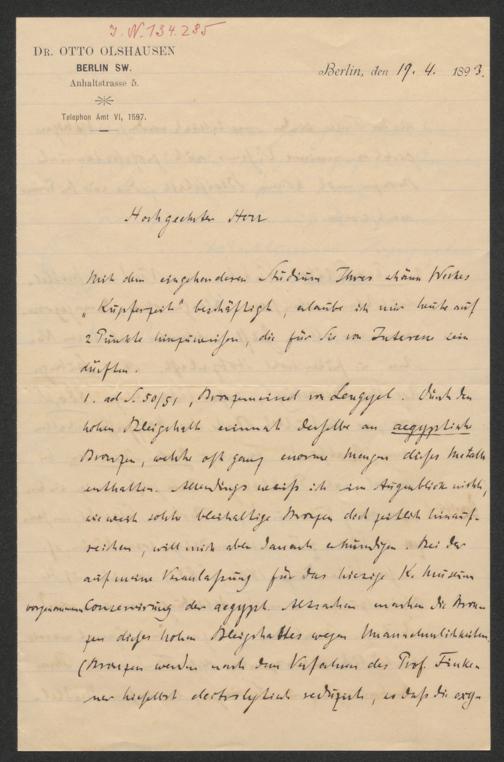 J. N. 134.285
DR. OTTO OLSHAUSEN
BERLIN SW.
Anhaltstrasse 5.
Telephon Amt VI, 1597.
Berlin, den 19. 4. 1893.
Hochgeehrter Herr
Mit dem eingehenderen Studium Ihres schönen Werkes
„Kupferzeit“ beschäftigt, erlaube ich mir heute auf
2 Punkte hinzuweisen, die für Sie von Interesse sein
dürften.
1. ad S. 50/51, Bronzemeissel von Lengyel. Durch den
hohen Bleigehalt erinnert derselbe an aegyptische
Bronzen, welche oft ganz enorme Mengen dieses Metalls
enthalten. Allerdings weiß ich im Augenblick nicht,
wie weit solche bleihaltige Bronzen dort zeitlich hinauf-
reichen, will mich aber danach erkundigen. Bei der
auf meine Veranlaßung für das hiesige K. Museum
vorgenommenen Conservirung der aegypt. Altsachen machen die Bron-
zen dieses hohen Bleigehaltes wegen Unannehmlichkeiten
(Bronzen werden nach dem Verfahren des Prof. Finke-
ner hieselbst electrolytisch reduzirt, so daß die oxy-